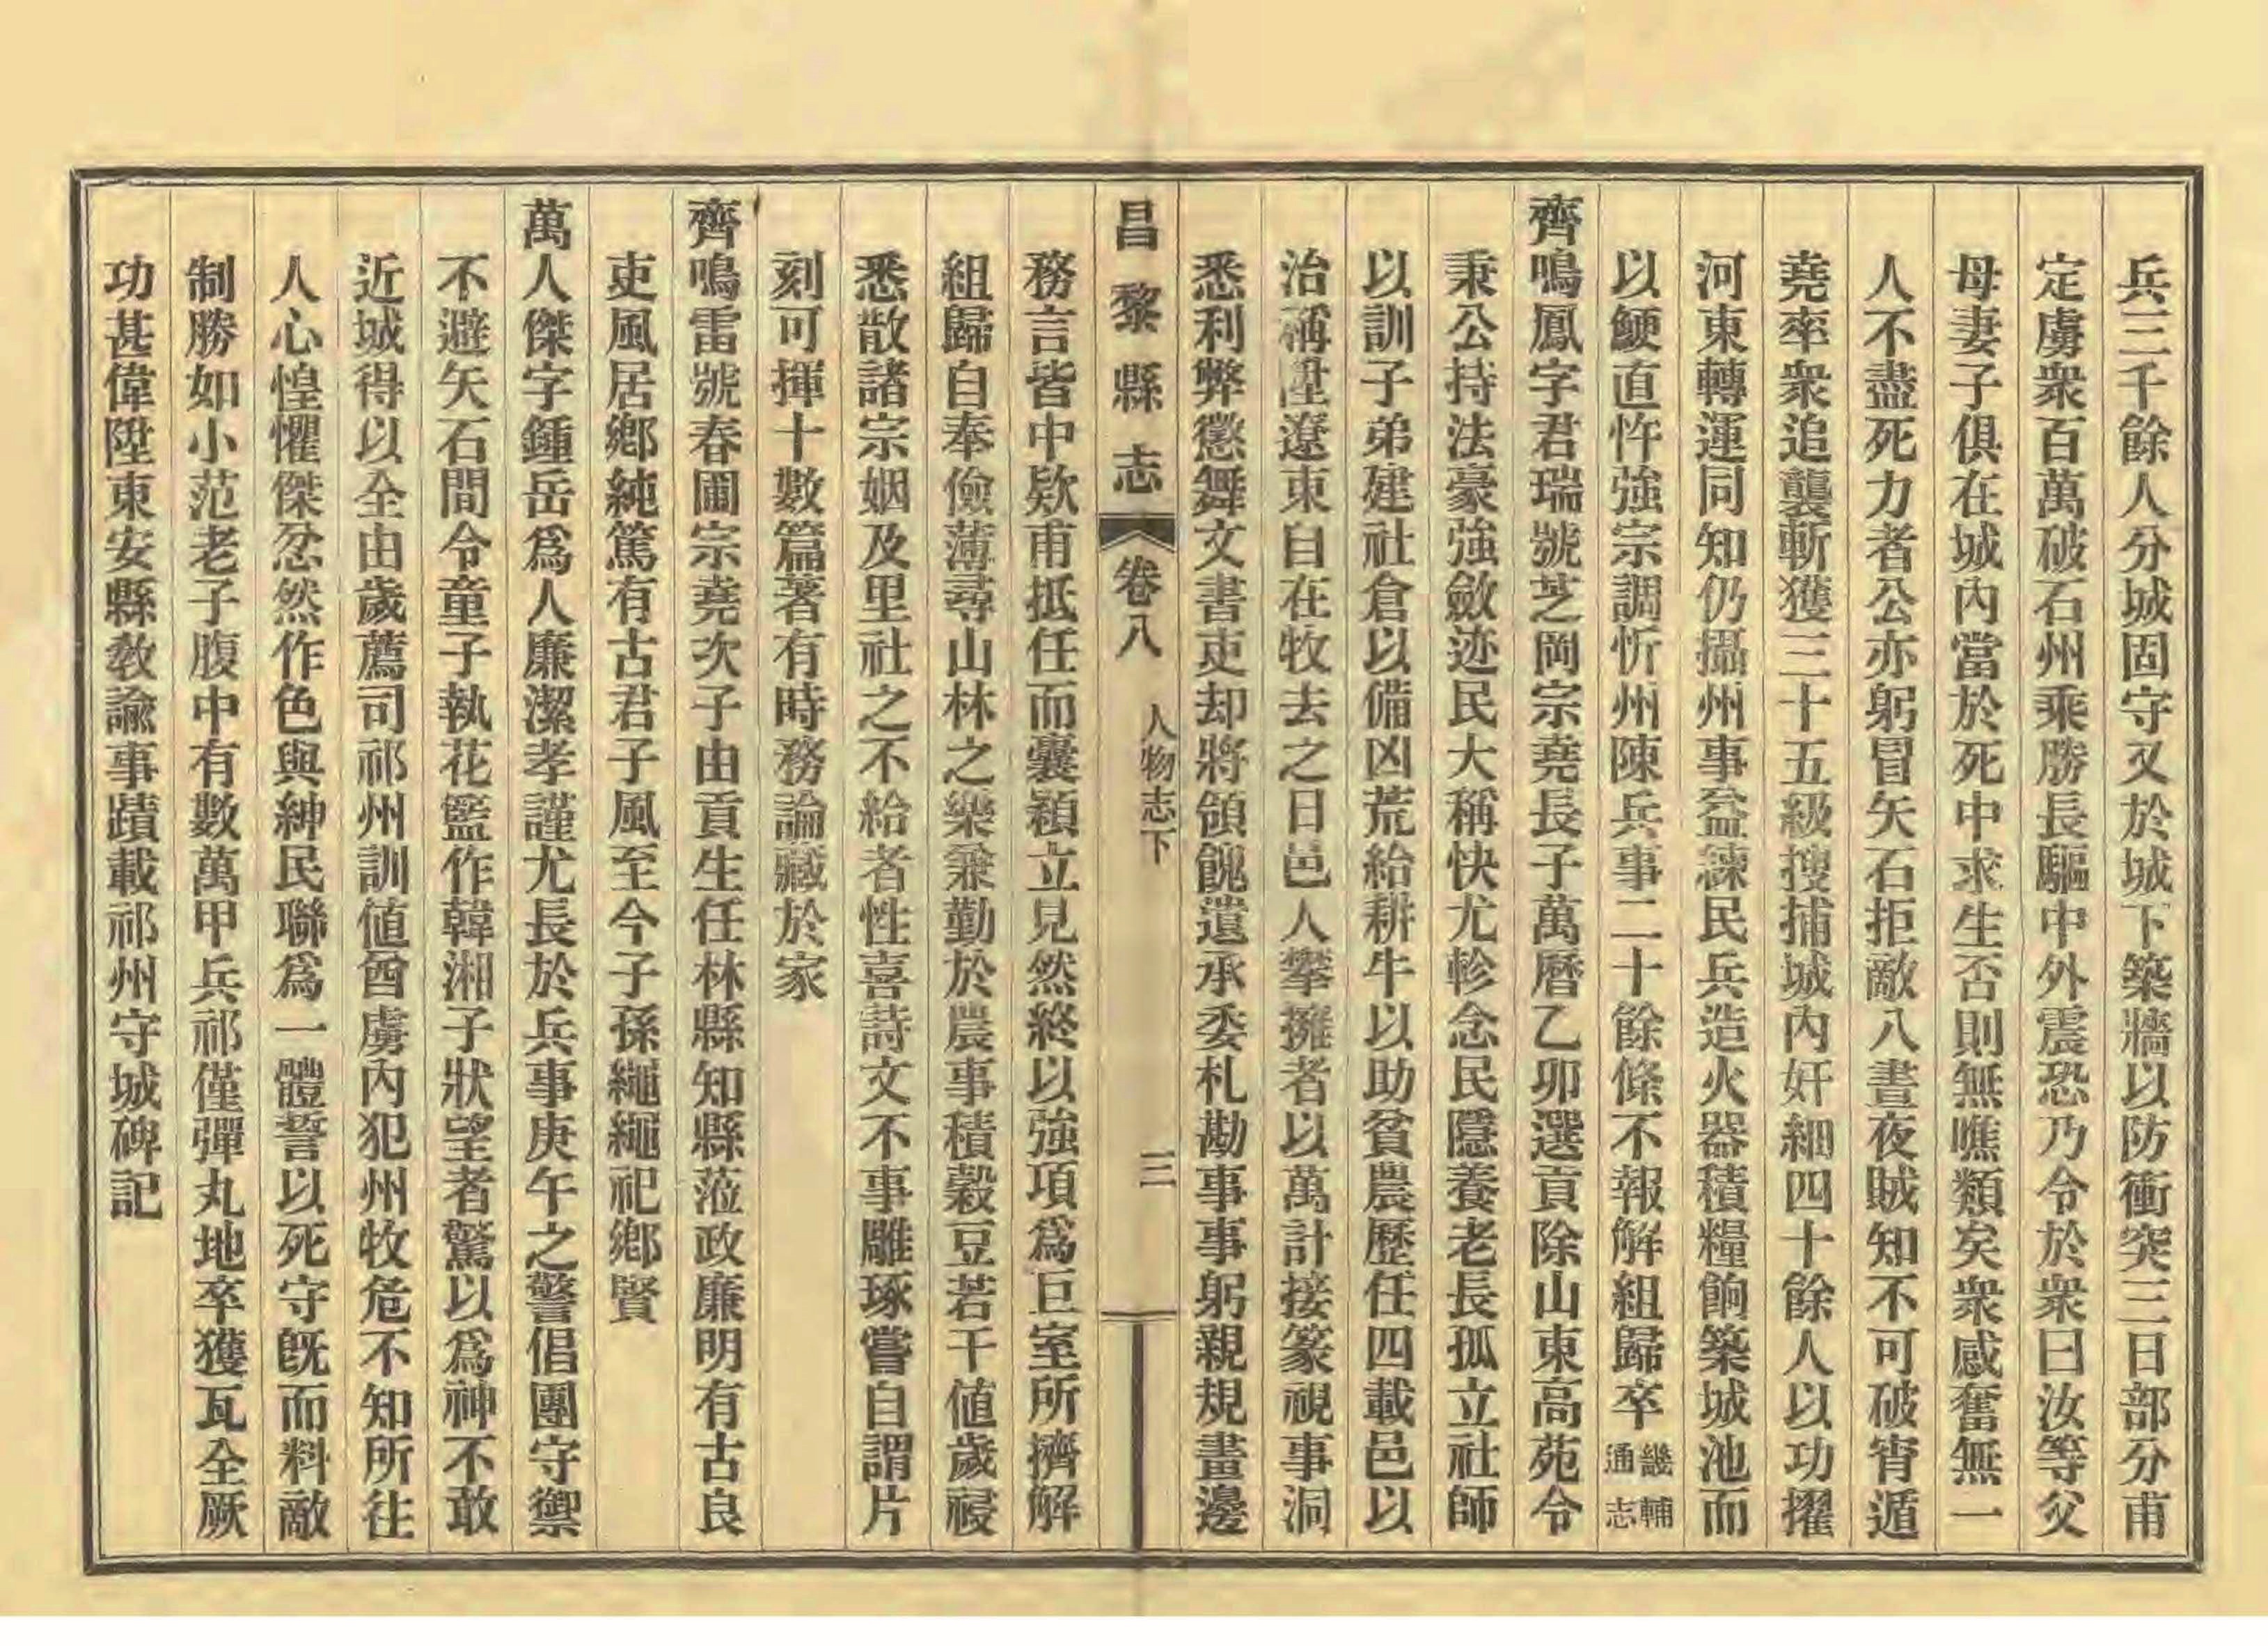 兵三千餘人分城固守又於城下築牆以防衝突三日部分甫
定虜衆百萬破石州乘勝長驅中外震恐乃令於衆曰汝等父
母妻子俱在城內當於死中求生否則無噍類矣衆感奮無一
人不盡死力者公亦躬冒矢石拒敵八晝夜賊知不可破宵遁
堯率衆追襲斬獲三十五級搜捕城內奸細四十餘人以功擢
河東轉運同知仍攝州事益練民兵造火器積糧餉築城池而
以鯁直忤強宗調忻州陳兵事二十餘條不報解組歸卒畿輔通志
齊鳴鳳字君瑞號芝岡宗堯長子萬曆乙卯選貢除山東高苑令
秉公持法豪強斂迹民大稱快尤軫念民隱養老長孤立社師
以訓子弟建社倉以備凶荒給耕牛以助貧農歷任四載邑以
治稱陞遼東自在牧去之日邑人攀擁者以萬計接篆視事洞
悉利弊懲舞文書吏却將領餽遺承委札勘事事躬親規畫邊
昌黎縣志 卷八 人物志下 三
務言皆中欵甫抵任而囊穎立見然終以強項爲巨室所擠解
組歸自奉儉薄尋山林之樂兼勤於農事積穀豆若干値歲祲
悉散諸宗姻及里社之不給者性喜詩文不事雕琢嘗自謂片
刻可揮十數篇著有時務論藏於家
齊鳴雷號春圃宗堯次子由貢生任林縣知縣蒞政廉明有古良
吏風居鄉純篤有古君子風至今子孫繩繩祀鄉賢
萬人傑字鍾岳爲人廉潔孝謹尤長於兵事庚午之警倡團守禦
不避矢石間令童子執花籃作韓湘子狀望者驚以爲神不敢
近城得以全由歲薦司祁州訓値酋虜內犯州牧危不知所往
人心惶懼傑忿然作色與紳民聯爲一體誓以死守旣而料敵
制勝如小范老子腹中有數萬甲兵祁僅彈丸地卒獲瓦全厥
功甚偉陞東安縣敎諭事蹟載祁州守城碑記